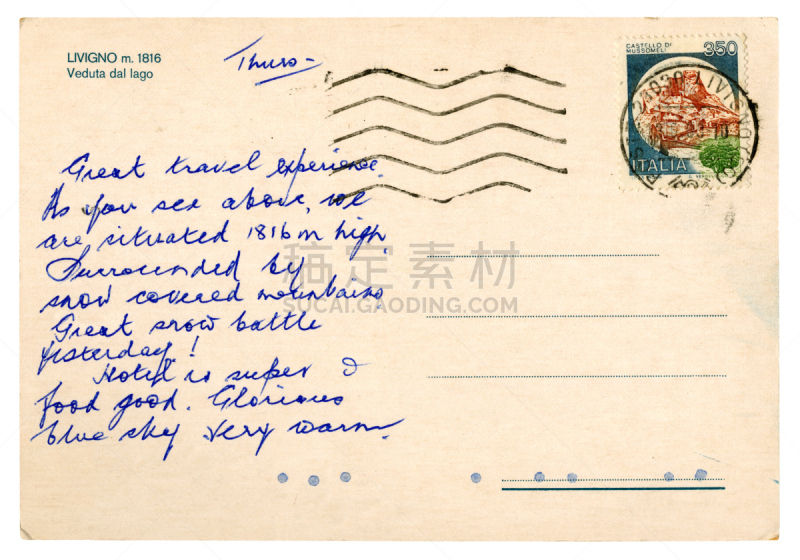 LIVIGNO m. 1816
Veduta dal lago
Thurs -
CASTELLO DI
MUSSOMELI
350
ITALIA
Great travel experience.
As you see above, we
are situated 1816 m high.
Surrounded by
snow covered mountains
Great snow battle
yesterday!
Hotel is super &
food good. Glorious
blue sky very warm.
稿定素材
SUCAI.GAODING.COM